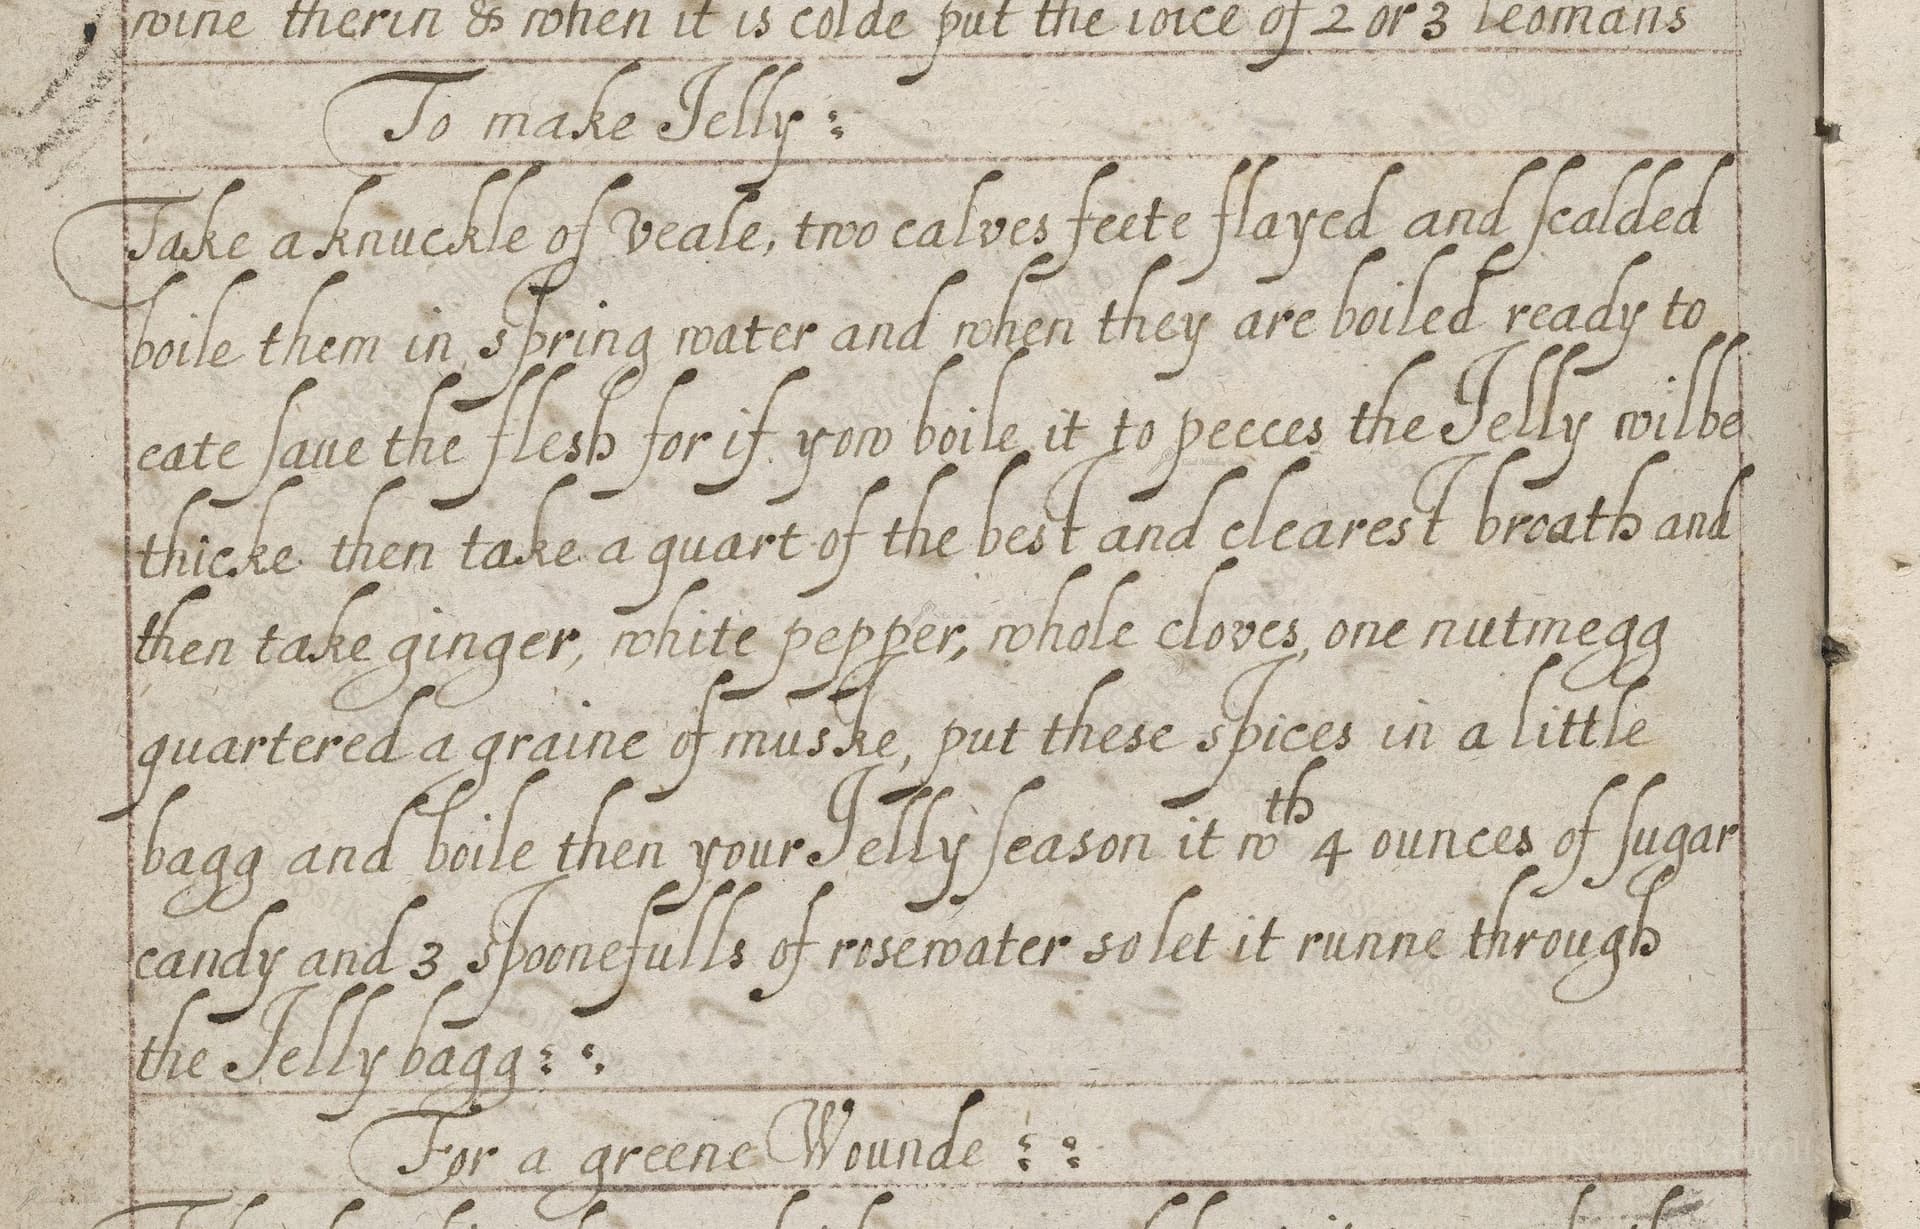 wine therin & when it is colde put the ioice of 2 or 3 leomans
To make Jelly:
Take a knuckle of veale, two calves feete flayed and scalded
boile them in spring water and when they are boiled ready to
eate saue the flesh for if yow boile it to peeces the Jelly wilbe
thicke then take a quart of the best and clearest broath and
then take ginger, white pepper, whole cloves, one nutmegg
quartered a graine of muske, put these spices in a little
bagg and boile then your Jelly season it wth 4 ounces of sugar
candy and 3 spoonefulls of rosewater so let it runne through
the Jelly bagg: :
For a greene Wounde : :